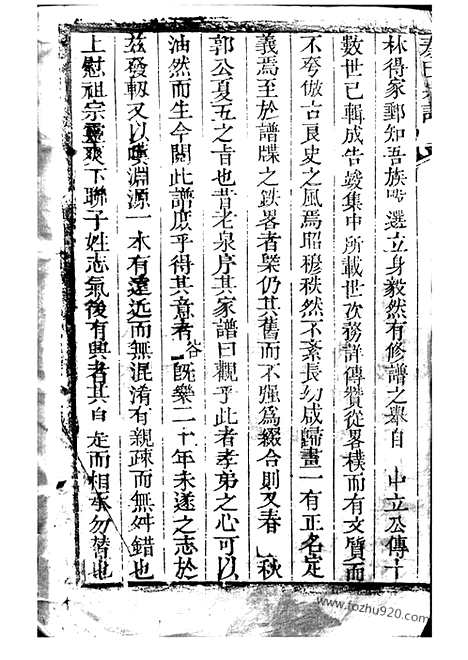 秦氏宗譜
林得家郵知吾族 選立身毅然有修譜之舉自 中立公傳十
數世已輯成告竣集中所載世次務詳傳贊從畧樸而有文質而
不夸倣古良史之風焉昭穆秩然不紊長幼咸歸畫一有正名定
義焉至於譜牒之鈌畧者槩仍其舊而不強為綴合則又春 秋
郭公夏五之旨也昔老泉序其家譜曰觀乎此者孝弟之心可以
油然而生今閱此譜庶乎得其意者 谷既樂二十年未遂之志於
兹發軔又以嘆淵源一水有遠近而無混淆有親疎而無舛錯也
上慰祖宗靈爽下聯子姓志氣後有興者其自 定而相承勿替也
www.fozhu920.com